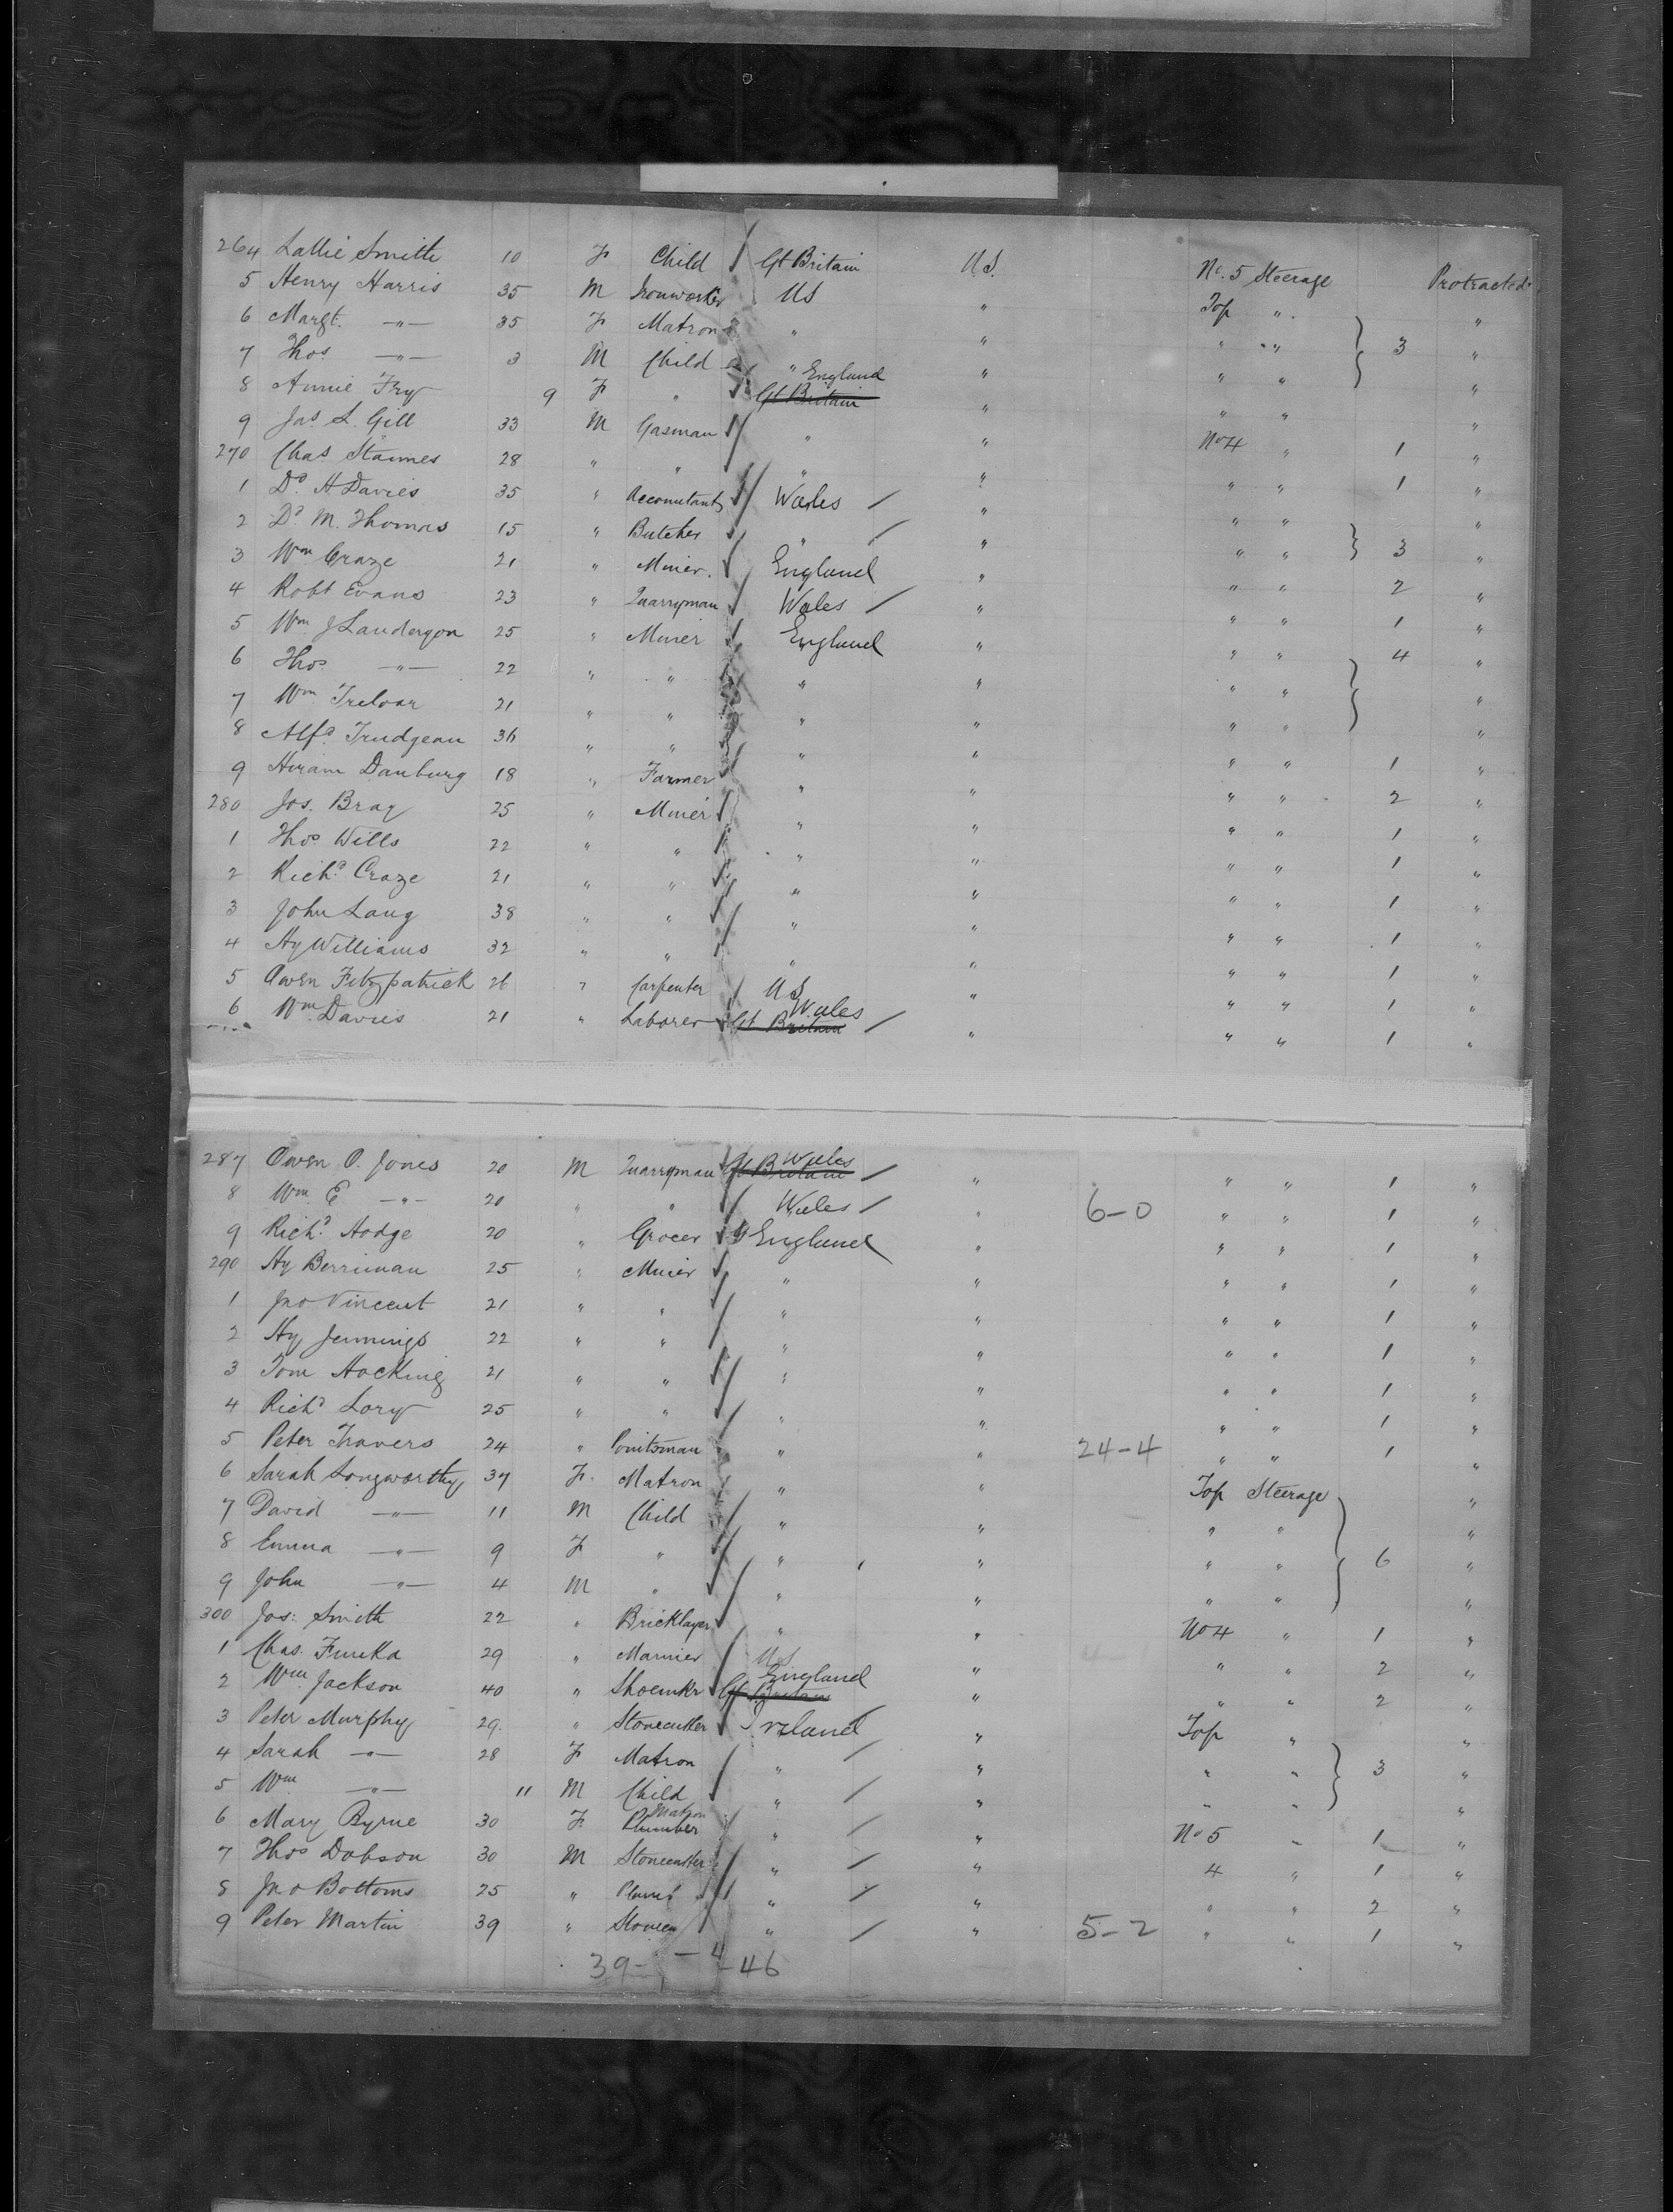 264 Lallie Smith 10 F Child Gt Britain U.S. No. 5 Steerage Protracted
5 Henry Harris 35 M Ironworker US " Top " "
6 Margt. —"— 35 F Matron " " " " 3 "
7 Thos —"— 3 M Child " " " " "
8 Annie Fry 9 F " England Gt Britain " " " "
9 Jas. S. Gill 33 M Gasman " " No 4 " 1 "
270 Chas Staines 28 " " " " " " 1 "
1 Dd. H Davies 35 " Accountant Wales " " " "
2 Dd. M. Thomas 15 " Butcher " " " " 3 "
3 Wm Craze 21 " Miner. England " " " 2 "
4 Robt Evans 23 " Quarryman Wales " " " 1 "
5 Wm J Landergon 25 " Miner England " " " 4 "
6 Thos. —"— 22 " " " " " " "
7 Wm Treloar 21 " " " " " " "
8 Alfd. Trudgeau 36 " " " " " " 1 "
9 Hiram Danburg 18 " Farmer " " " " 2 "
280 Jos. Bray 25 " Miner " " " " 1 "
1 Thos Wills 22 " " " " " " 1 "
2 Richd. Craze 21 " " " " " " 1 "
3 John Lang 38 " " " " " " 1 "
4 Hy Williams 32 " " " " " " 1 "
5 Owen Fitzpatrick 26 " Carpenter U S " " " 1 "
6 Wm. Davies 21 " Laborer Wales Gt Britain " " " 1 "
287 Owen O. Jones 20 M Quarryman Wales Gt Britain " " " 1 "
8 Wm E —"— 20 " " Wales " 6-0 " " 1 "
9 Richd. Hodge 20 " Grocer England " " " 1 "
290 Hy Berriman 25 " Miner " " " " 1 "
1 Jno Vincent 21 " " " " " " 1 "
2 Hy Jennings 22 " " " " " " 1 "
3 Tom Hocking 21 " " " " " " 1 "
4 Richd Lory 25 " " " " " " 1 "
5 Peter Travers 24 " Pointsman " " 24-4 " " 1 "
6 Sarah Longworthy 37 F. Matron " " Top Steerage "
7 David —"— 11 M Child " " " " "
8 Emma —"— 9 F " " " " " 6 "
9 John —"— 4 M " " " " " "
300 Jos: Smith 22 " Bricklayer " " No 4 " 1 "
1 Chas. Funka 29 " Mariner U S " " " 2 "
2 Wm. Jackson 40 " Shoemkr England Gt Britain " " " 2 "
3 Peter Murphy 29. " Stonecutter Ireland " Top " "
4 Sarah —"— 28 F Matron " " " " 3 "
5 Wm —"— 11 M Child " " " " "
6 Mary Byrne 30 F Matron Plumber " " No 5 " 1 "
7 Thos Dobson 30 M Stonecutter " " 4 " 1 "
8 Jno Bottoms 25 " " " " " 2 "
9 Peter Martin 39 " " " 5-2 " " 1 "
39- -4 46